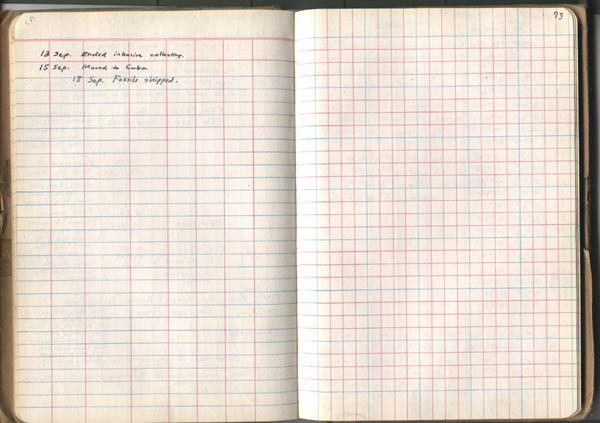 13 Sep. Ended intensive collecting.
15 Sep. Moved to Cuba
18 Sep. Fossils shipped.
73